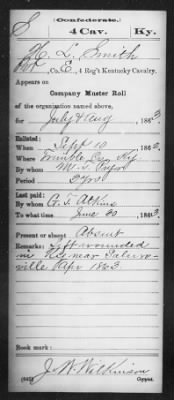 Confederate.
S 4 Cav. Ky.
H. L. Smith
Pvt, Co. E, 4 Reg't Kentucky Cavalry.
Appears on
Company Muster Roll
of the organization named above,
for July & Aug, 1863.
Enlisted:
When Sept 10, 1862.
Where Trimble Co, Ky
By whom M. S.
Period 3 yrs
Last paid:
By whom G. T. Atkins
To what time June 30, 1863.
Present or absent Absent
Remarks: Left wounded
in Ky near
ville Apr 1863
Book mark:
J. W. Wilkinson
(642) Copyist.